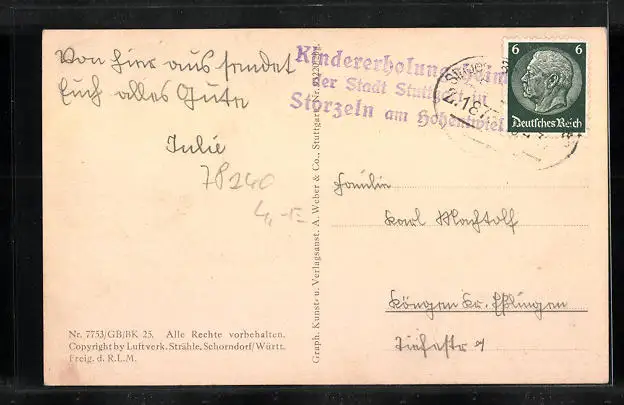 Von hier aus sendet
Euch alles Gute
Julie
78240
4,-
Kindererholungsheim
der Stadt Stuttgart in
Storzeln am Hohentwiel
6 6
Deutsches Reich
Familie
Karl Machtolf
Köngen Kr. Eßlingen
Tiefestr 9
Graph. Kunst- u. Verlagsanst. A. Weber & Co., Stuttgart
Nr. 7753/GB/BK 25. Alle Rechte vorbehalten.
Copyright by Luftverk. Strähle, Schorndorf/Württ.
Freig. d. R.L.M.